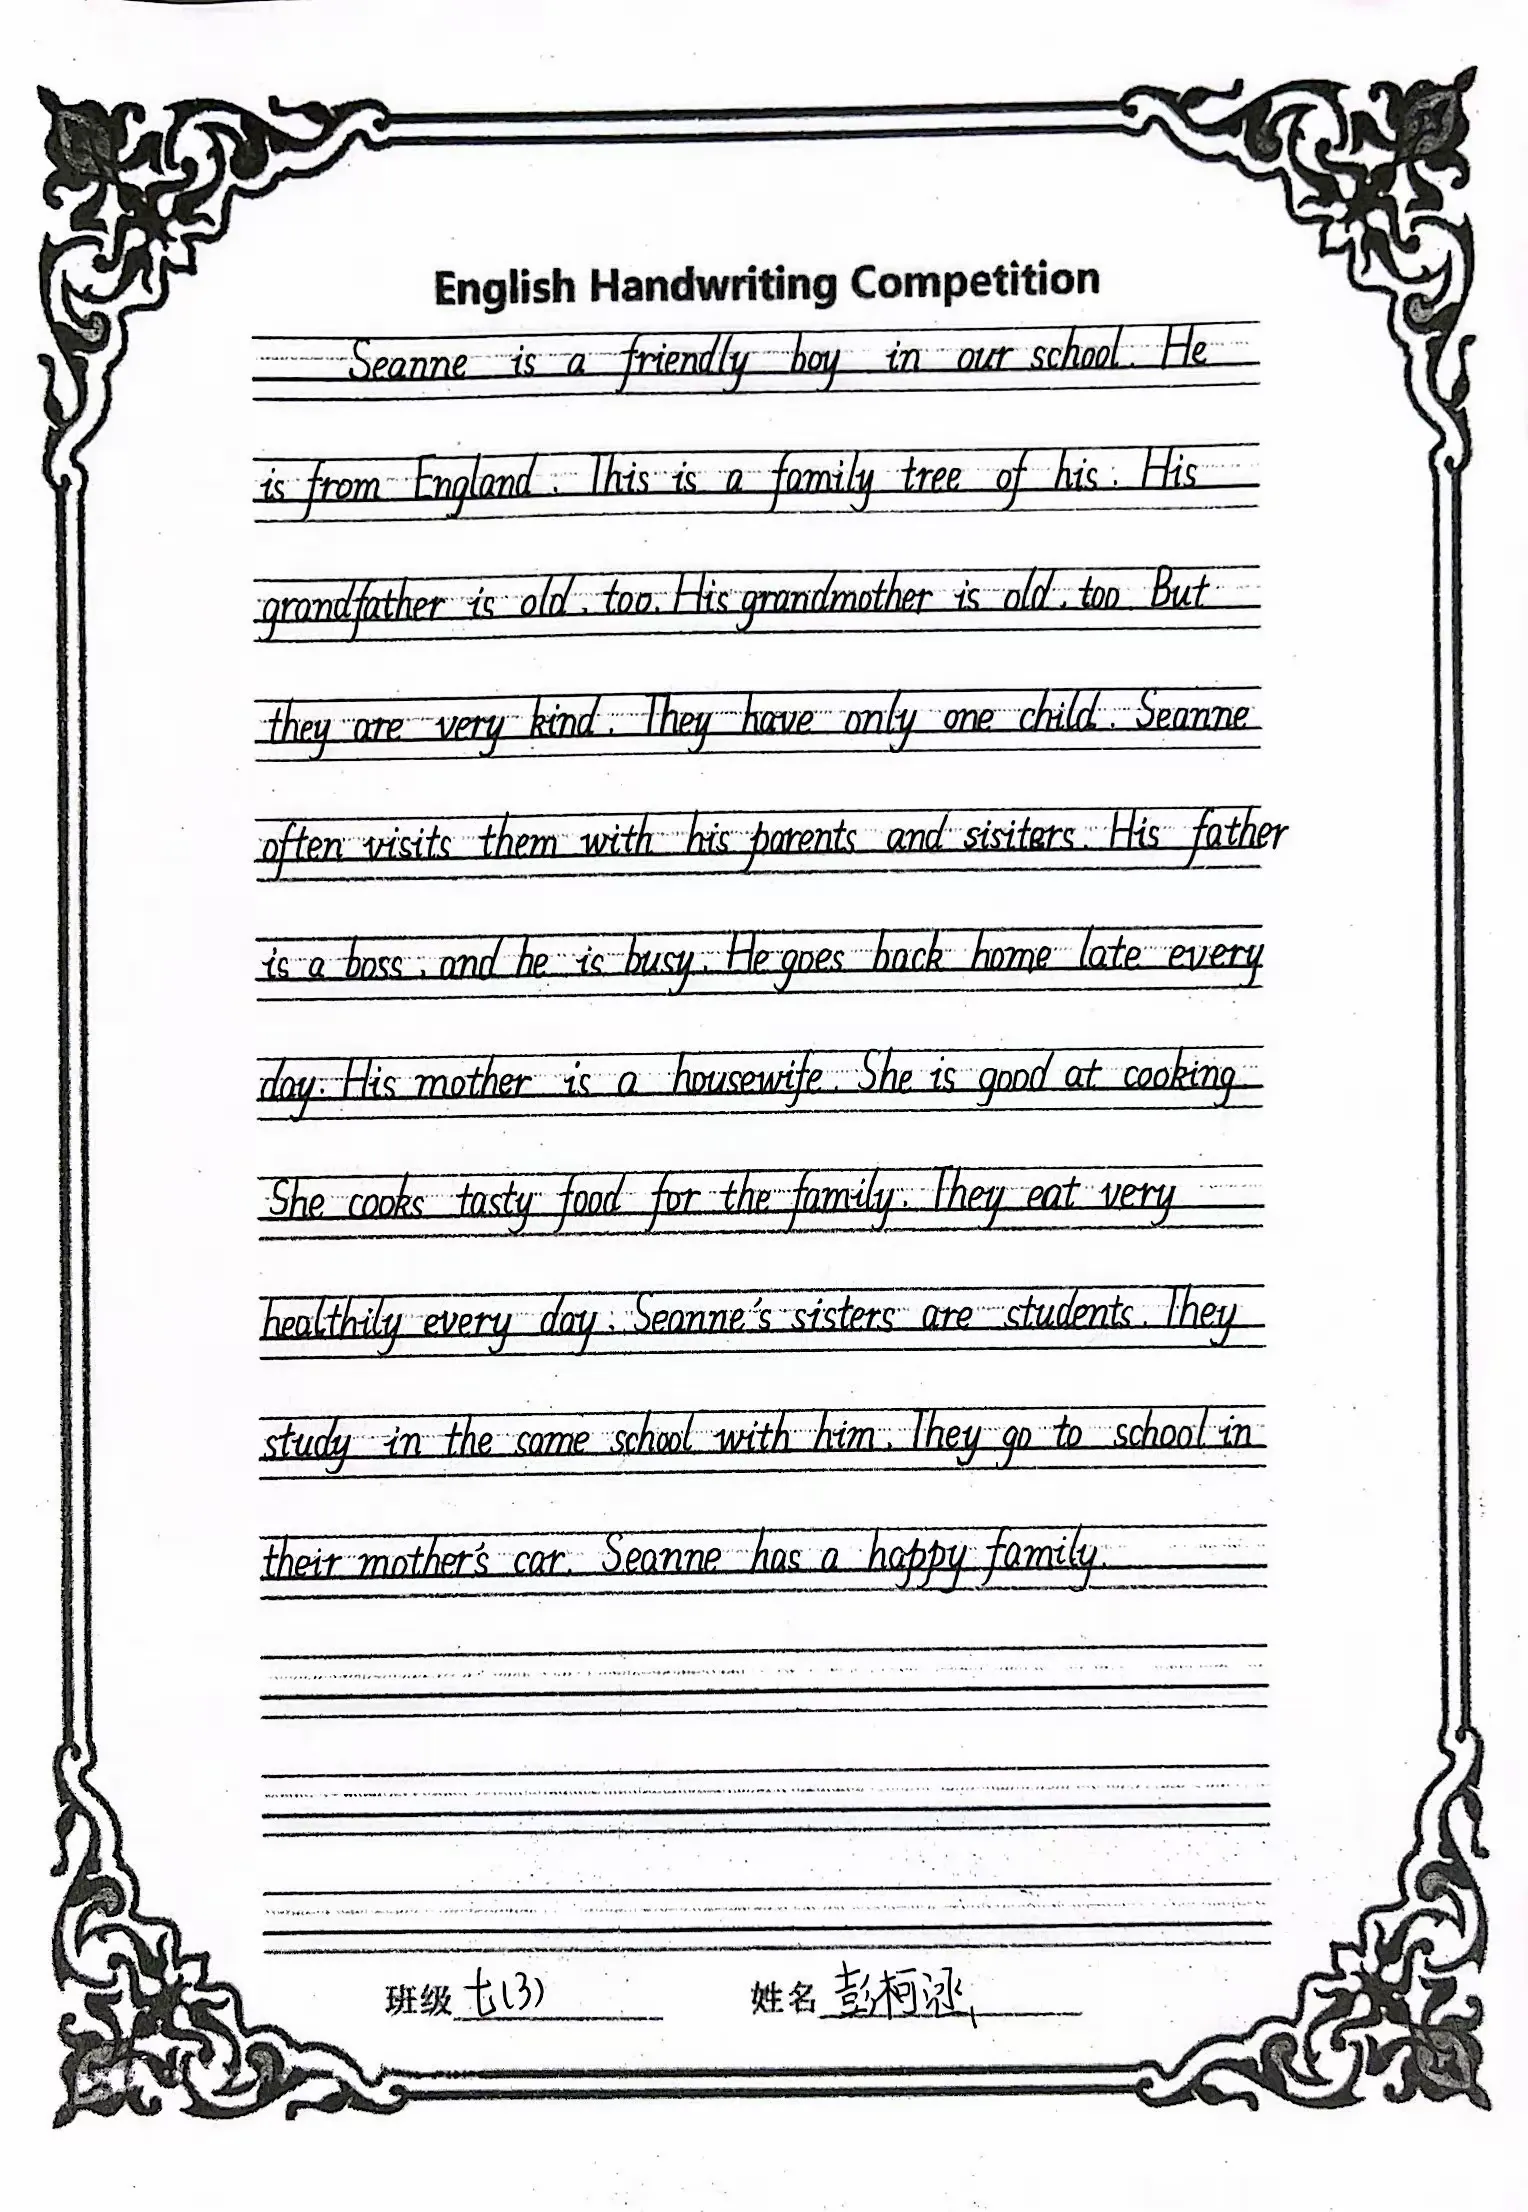 English Handwriting Competition
Seanne is a friendly boy in our school. He
is from England. This is a family tree of his. His
grandfather is old, too. His grandmother is old, too But
they are very kind. They have only one child. Seanne
often visits them with his parents and sisiters. His father
is a boss, and he is busy. He goes back home late every
day. His mother is a housewife. She is good at cooking
She cooks tasty food for the family. They eat very
healthily every day. Seanne's sisters are students. They
study in the same school with him. They go to school in
their mother's car. Seanne has a happy family.
班级 七(3) 姓名 彭柯泳